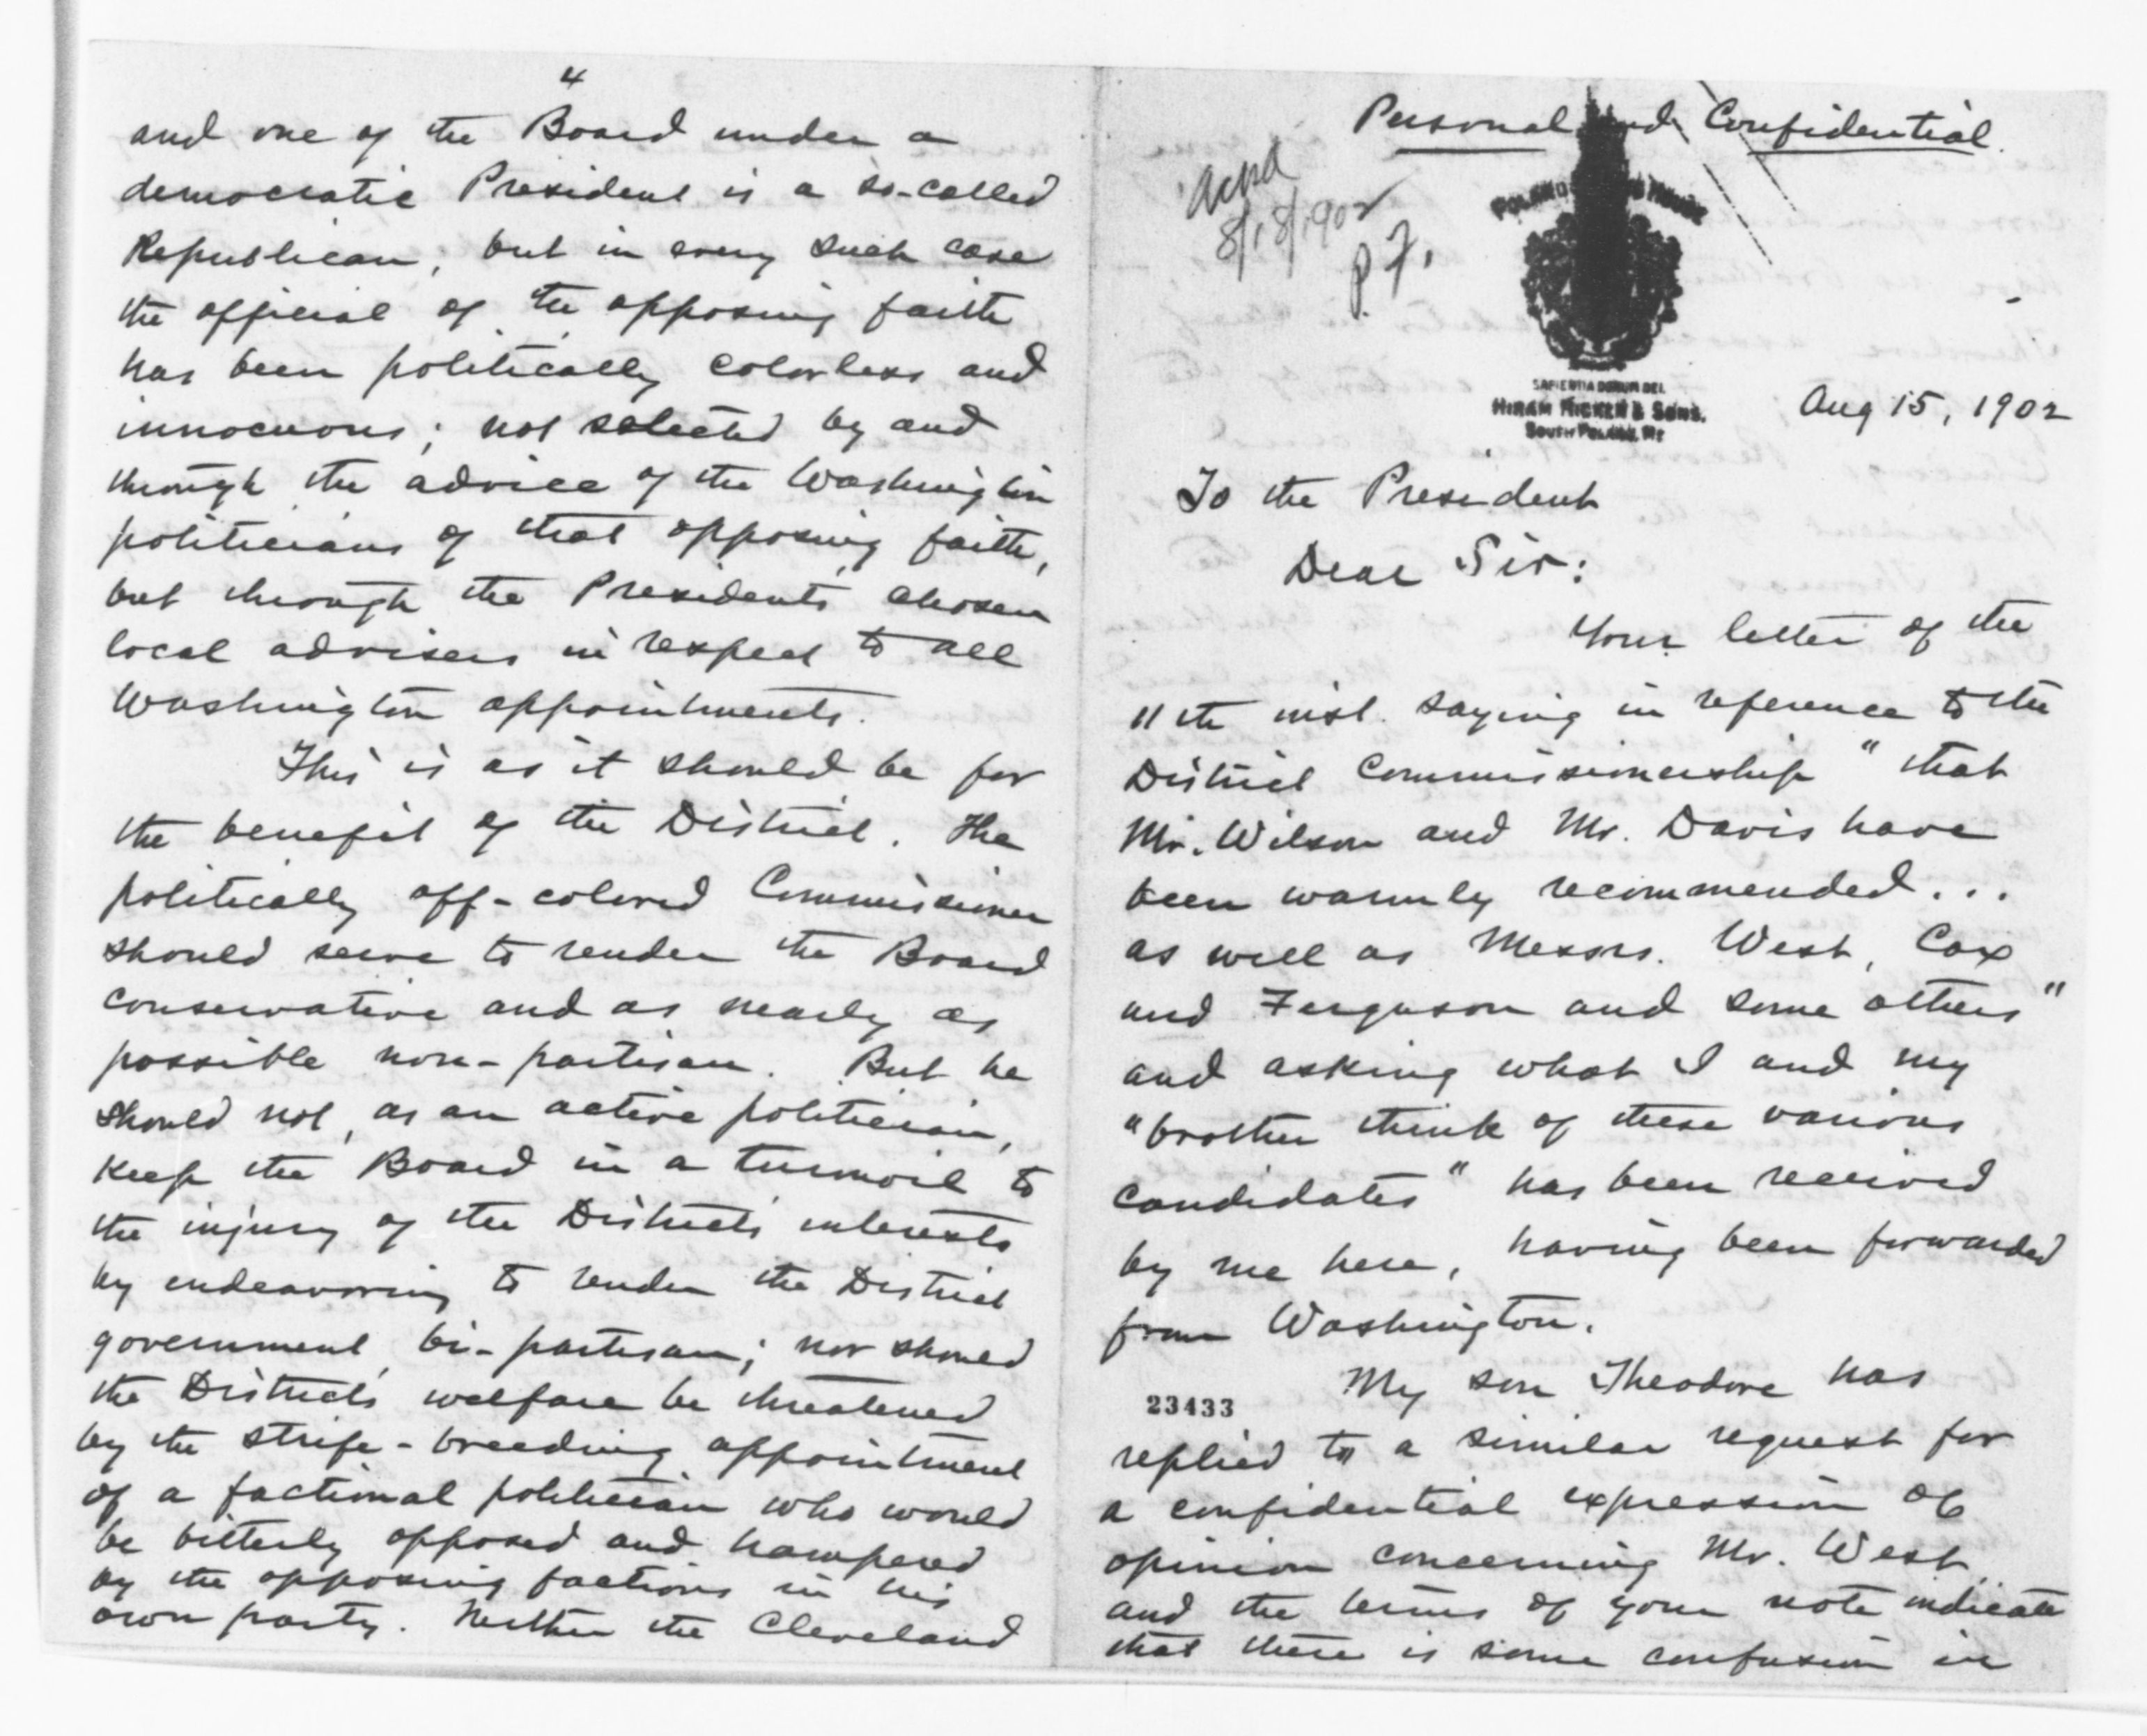 4
and one of the Board under a
democratic President is a so-called
Republican; but in every such case
the official of the opposing faith
has been politically colorless and
innocuous; not selected by and
through the advice of the Washington
politicians of that opposing faith,
but through the Presidents' chosen
local advisers in respect to all
Washington appointments.
This is as it should be for
the benefit of the District. The
politically off-colored Commissioner
should serve to render the Board
conservative and as nearly as
possible non-partisan. But he
should not, as an active politician,
keep the Board in a turmoil to
the injury of the District's interests
by endeavoring to render the District
government bi-partisan; nor should
the District's welfare be threatened
by the strife-breeding appointment
of a factional politician who would
be bitterly opposed and hampered
by the opposing factions in his
own party. Neither the Cleveland
Personal and Confidential.
Ackd
8/18/1902
P.F.
POLAND SPRING HOUSE
SAPIENTIA DONUM DEI.
HIRAM RICKER & SONS.
SOUTH POLAND, ME
Aug 15, 1902
To the President
Dear Sir:
Your letter of the
11th inst. saying in reference to the
District Commissionership "that
Mr. Wilson and Mr. Davis have
been warmly recommended...
as well as Messrs. West, Cox
and Ferguson and some others"
and asking what I and my
"brother think of these various
candidates" has been received
by me here, having been forwarded
from Washington.
My son Theodore has
23433
replied to a similar request for
a confidential expression of
opinion concerning Mr. West,
and the terms of your note indicate
that there is some confusion in